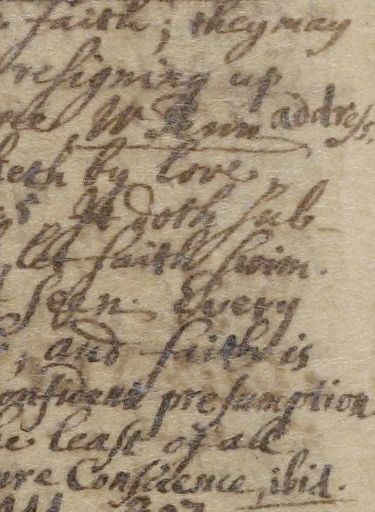 faith; they may
resigning up
W Penn address.
eth by love
It doth sub
let faith swim.
seen. Every
; and faith is
onfident presumption
he least of all
ure Confidence, ibid.